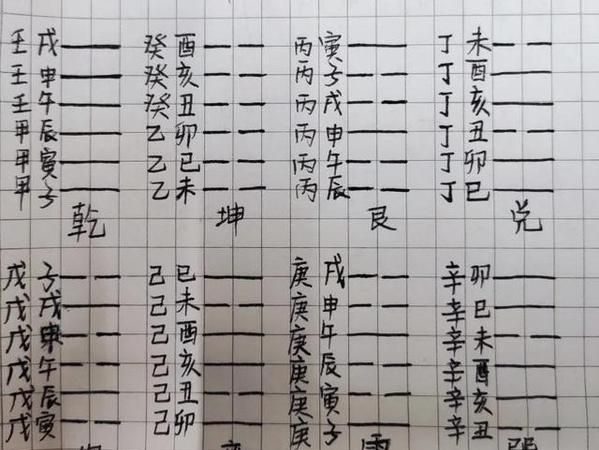 壬戌 癸酉 丙寅 丁未
壬申 癸亥 丙子 丁酉
壬午 癸丑 丙戌 丁亥
甲辰 乙卯 丙申 丁丑
甲寅 乙巳 丙午 丁卯
甲子 乙未 丙辰 丁巳
乾 坤 艮 兑
戊子 己巳 庚戌 辛卯
戊戌 己未 庚申 辛巳
戊申 己酉 庚午 辛未
戊午 己亥 庚辰 辛酉
戊辰 己丑 庚寅 辛亥
戊寅 己卯 庚子 辛丑